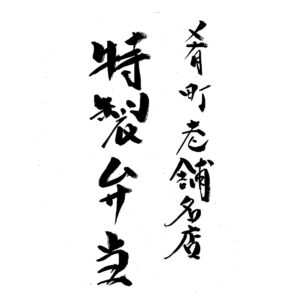 肴町老舗名店
特製弁当